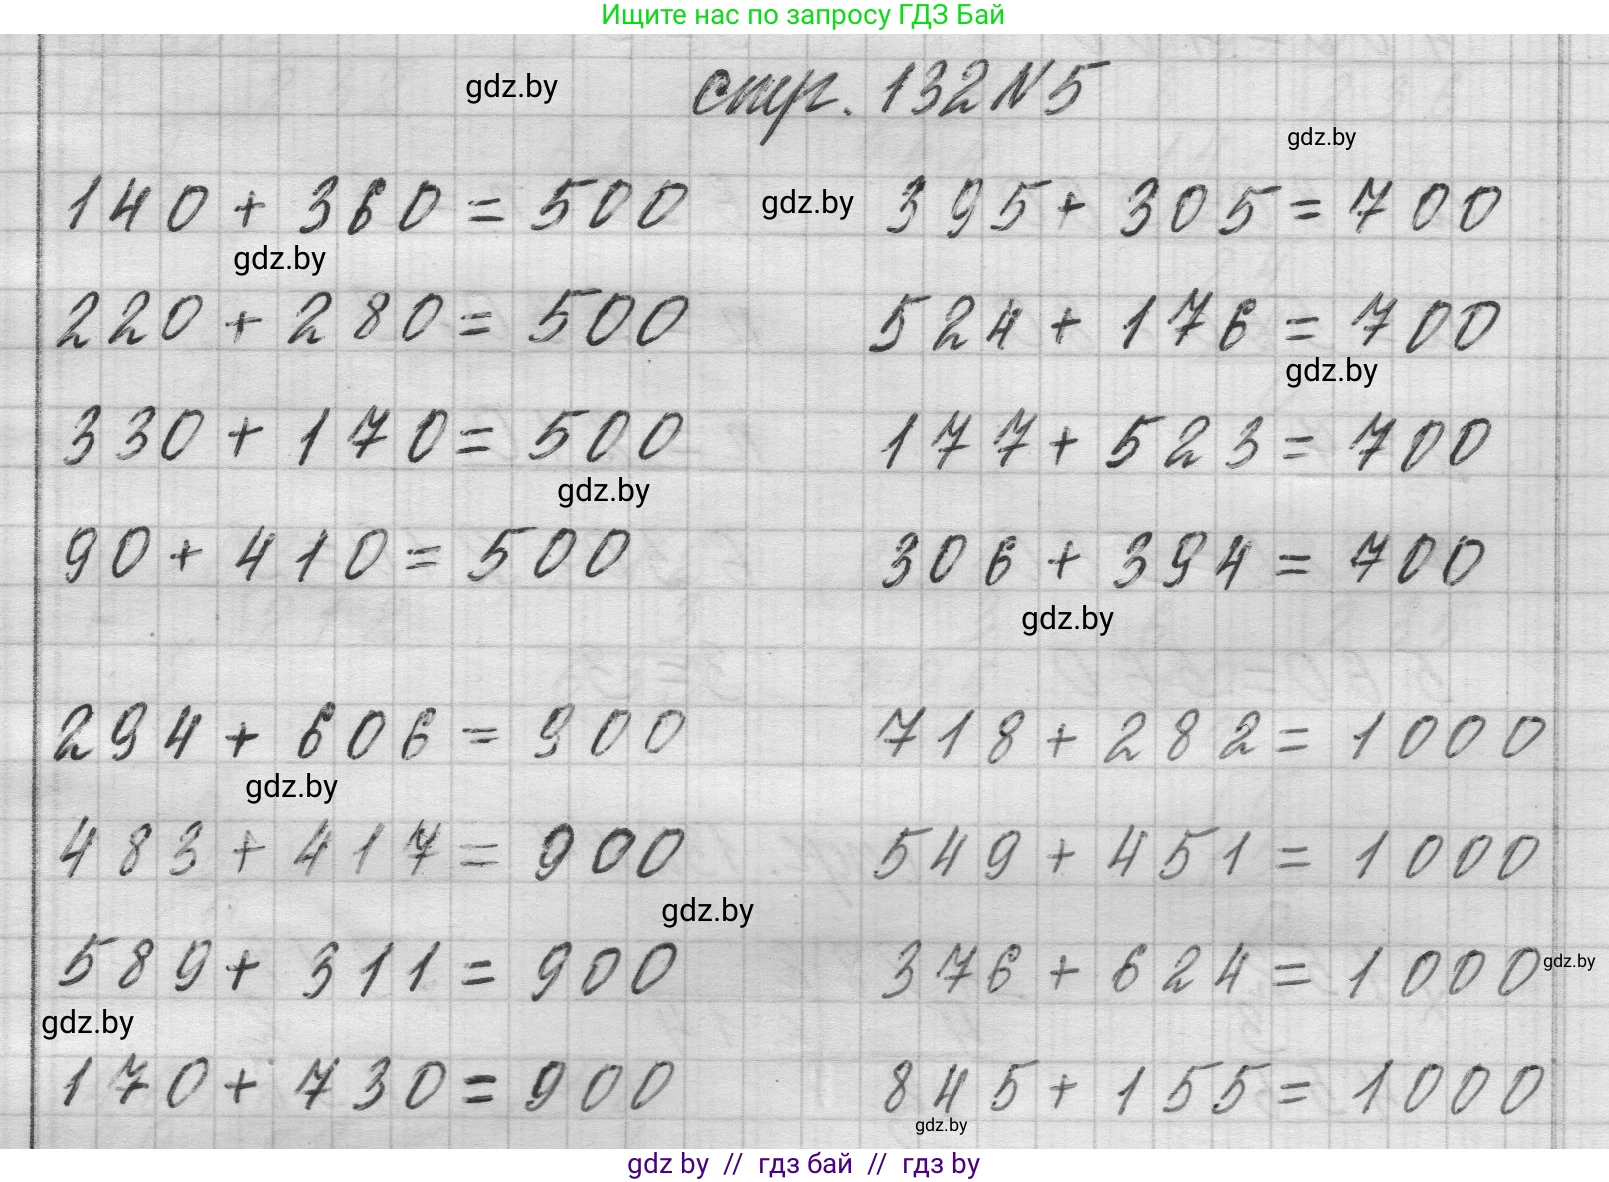 Ищите нас по запросу ГДЗ Бай
gdz.by
стр. 132 N 5
gdz.by
140 + 360 = 500
gdz.by
395 + 305 = 700
gdz.by
220 + 280 = 500
524 + 176 = 700
gdz.by
330 + 170 = 500
177 + 523 = 700
gdz.by
90 + 410 = 500
306 + 394 = 700
gdz.by
294 + 606 = 900
718 + 282 = 1000
gdz.by
483 + 417 = 900
549 + 451 = 1000
gdz.by
589 + 311 = 900
376 + 624 = 1000
gdz.by
gdz.by
170 + 730 = 900
845 + 155 = 1000
gdz.by
gdz by // гдз бай // гдз by